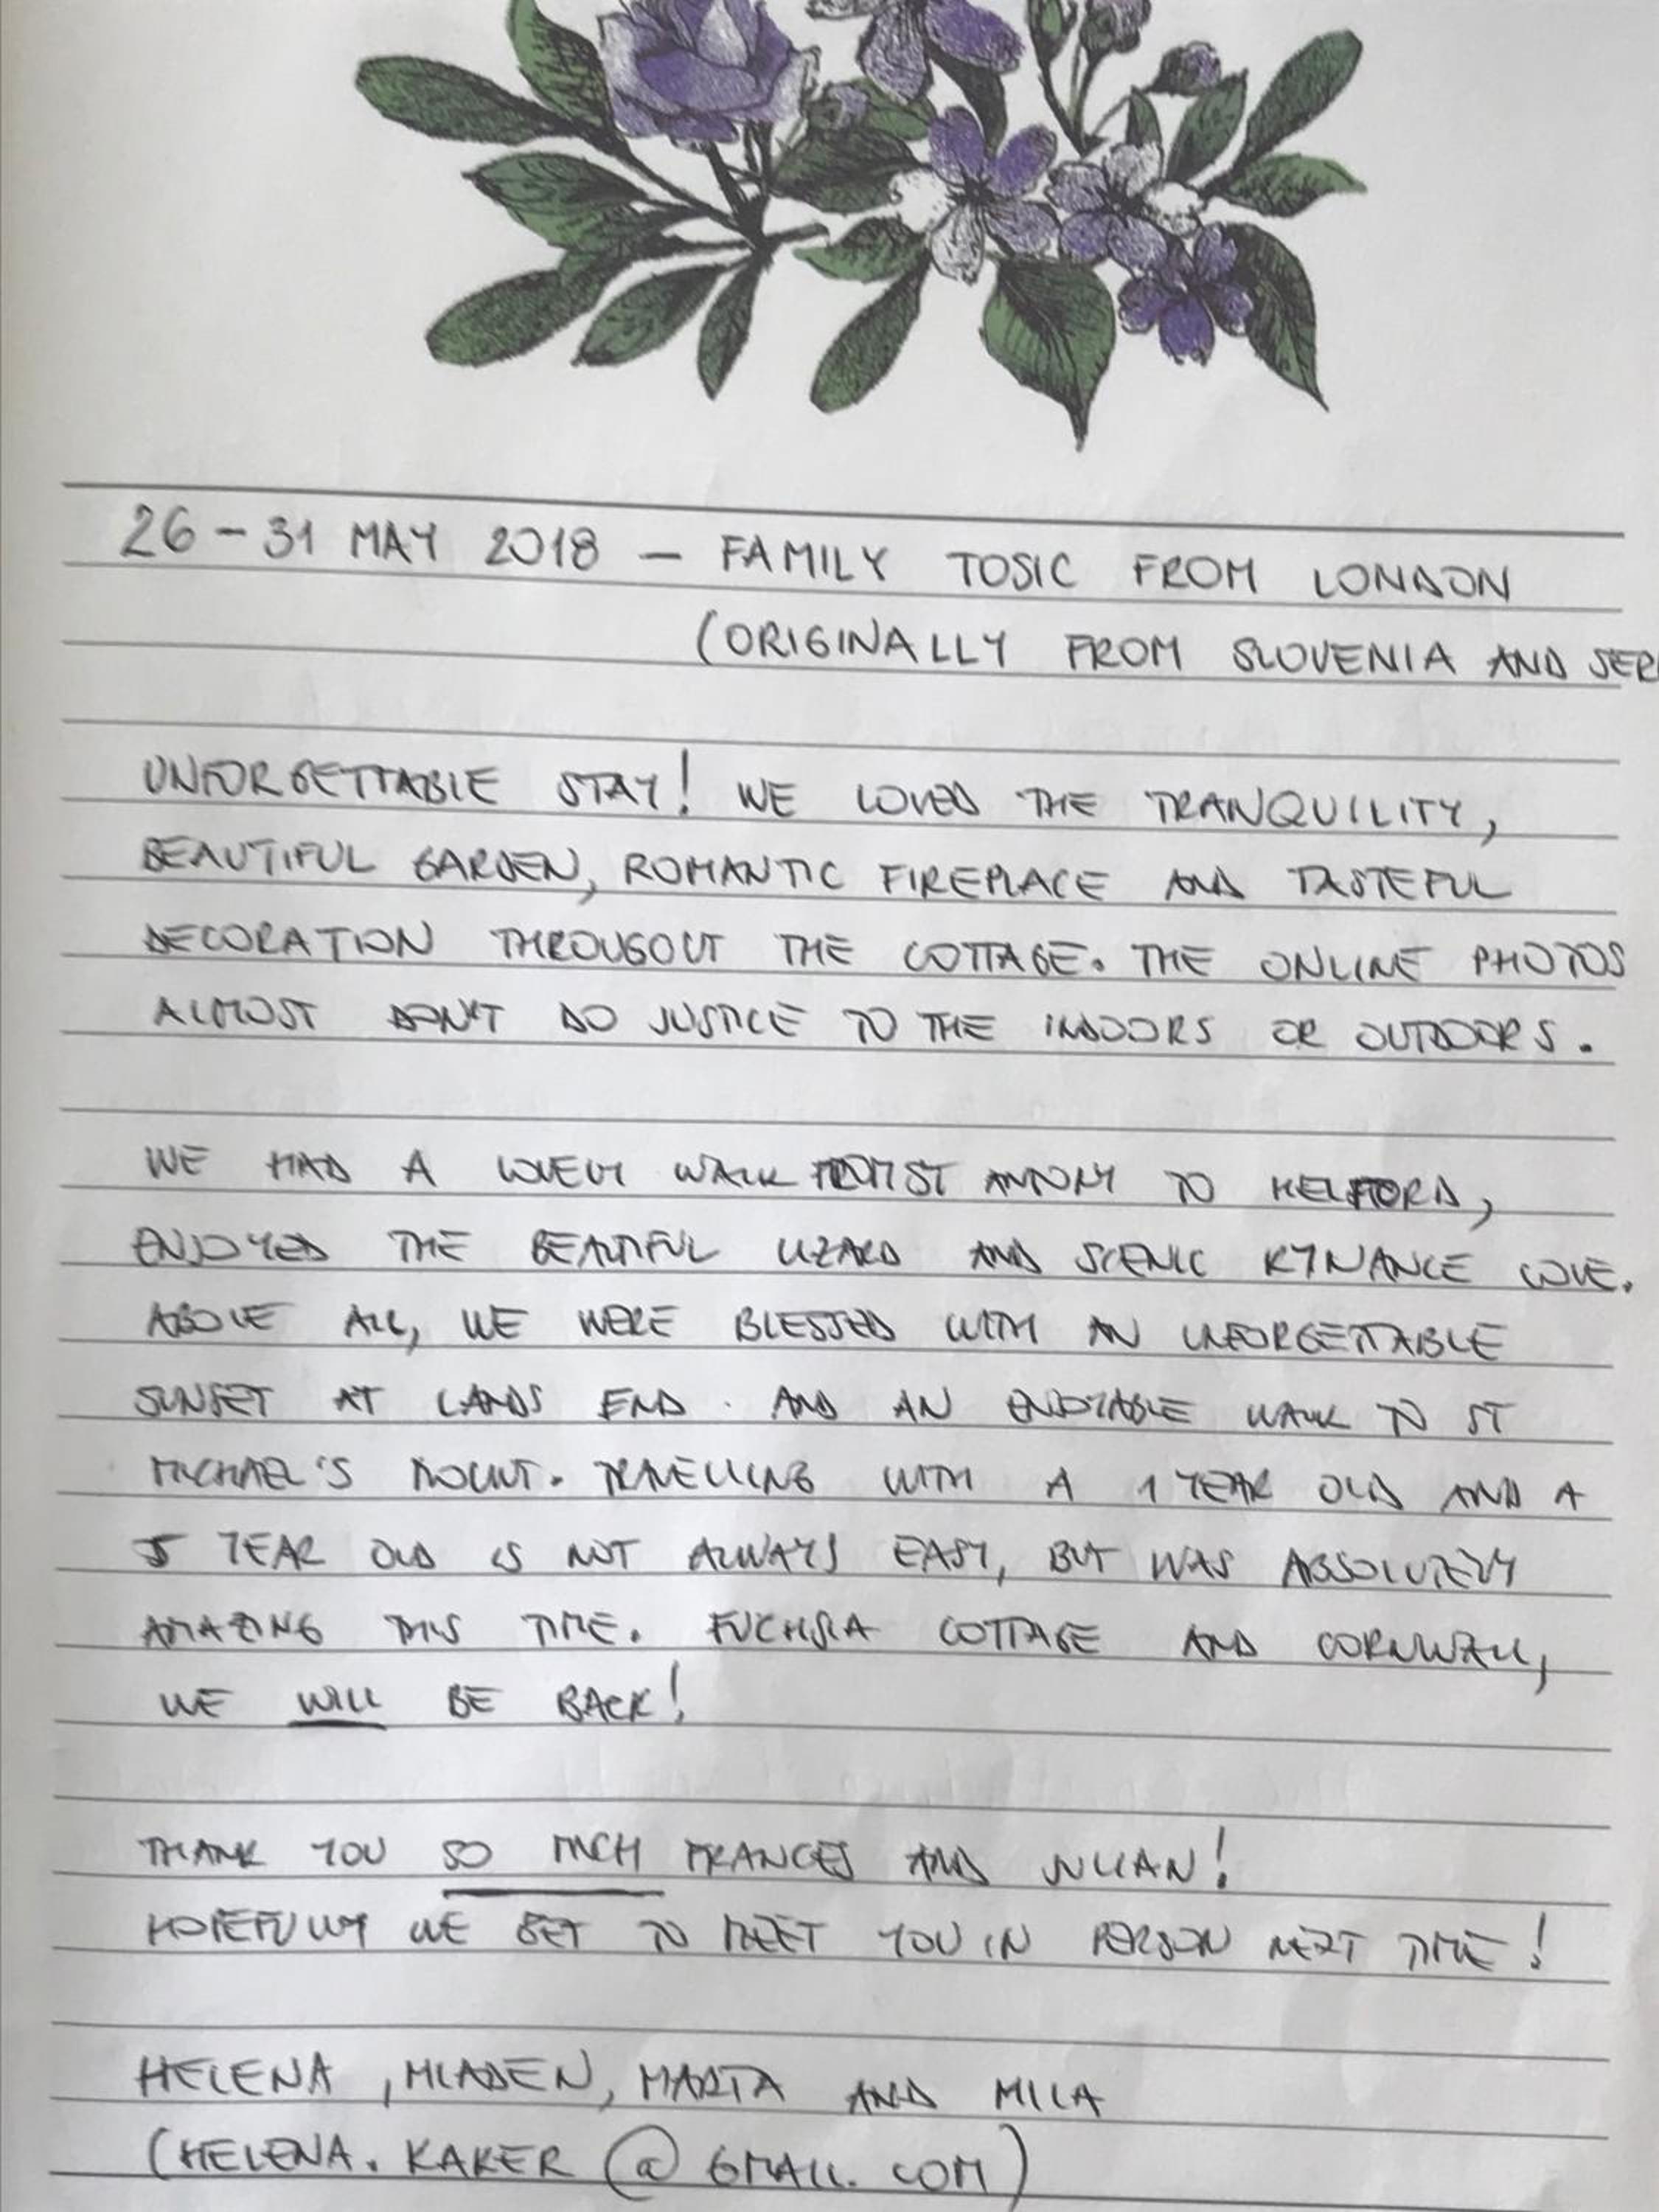 26 - 31 MAY 2018 - FAMILY TOSIC FROM LONDON
(ORIGINALLY FROM SLOVENIA AND SER
UNFORGETTABLE STAY! WE LOVED THE TRANQUILITY,
BEAUTIFUL GARDEN, ROMANTIC FIREPLACE AND TASTEFUL
DECORATION THROUGOUT THE COTTAGE. THE ONLINE PHOTOS
ALMOST DON'T DO JUSTICE TO THE INDOORS OR OUTDOORS.
WE HAD A LOVELY WALK FROM ST ANTONY TO HELFORD,
ENJOYED THE BEAUTIFUL LIZARD AND SCENIC KYNANCE COVE.
ABOVE ALL, WE WERE BLESSED WITH AN UNFORGETTABLE
SUNSET AT LANDS END. AND AN ENJOYABLE WALK TO ST
MICHAEL'S MOUNT. TRAVELLING WITH A 1 YEAR OLD AND A
5 YEAR OLD IS NOT ALWAYS EASY, BUT WAS ABSOLUTELY
AMAZING THIS TIME. FUCHSIA COTTAGE AND CORNWALL,
WE WILL BE BACK!
THANK YOU SO MUCH FRANCES AND JULIAN!
HOPEFULLY WE GET TO MEET YOU IN PERSON NEXT TIME!
HELENA, MLADEN, MARTA AND MILA
(HELENA.KAKER@GMAIL.COM)